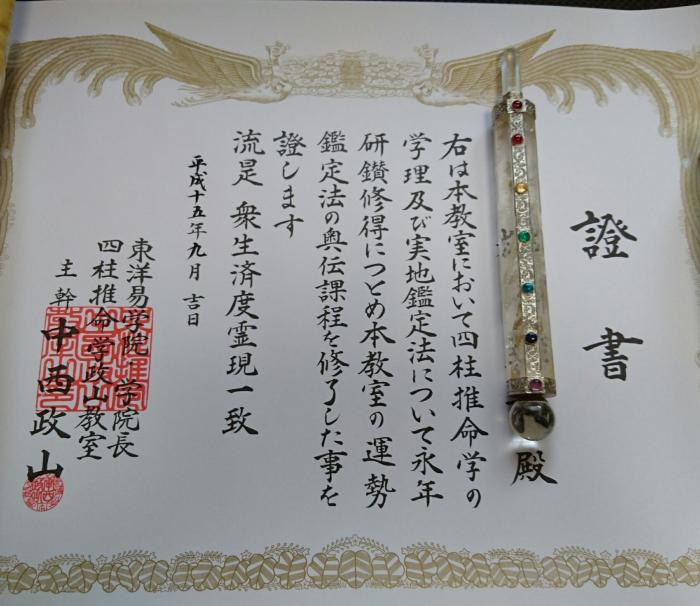 證書
殿
右は本教室において四柱推命学の
学理及び実地鑑定法について永年
研鑚修得につとめ本教室の運勢
鑑定法の奥伝課程を修了した事を
證します
流是 衆生済度霊現一致
平成十五年九月 吉日
東洋易学院 学院長
四柱推命学政山教室
主幹 中西政山